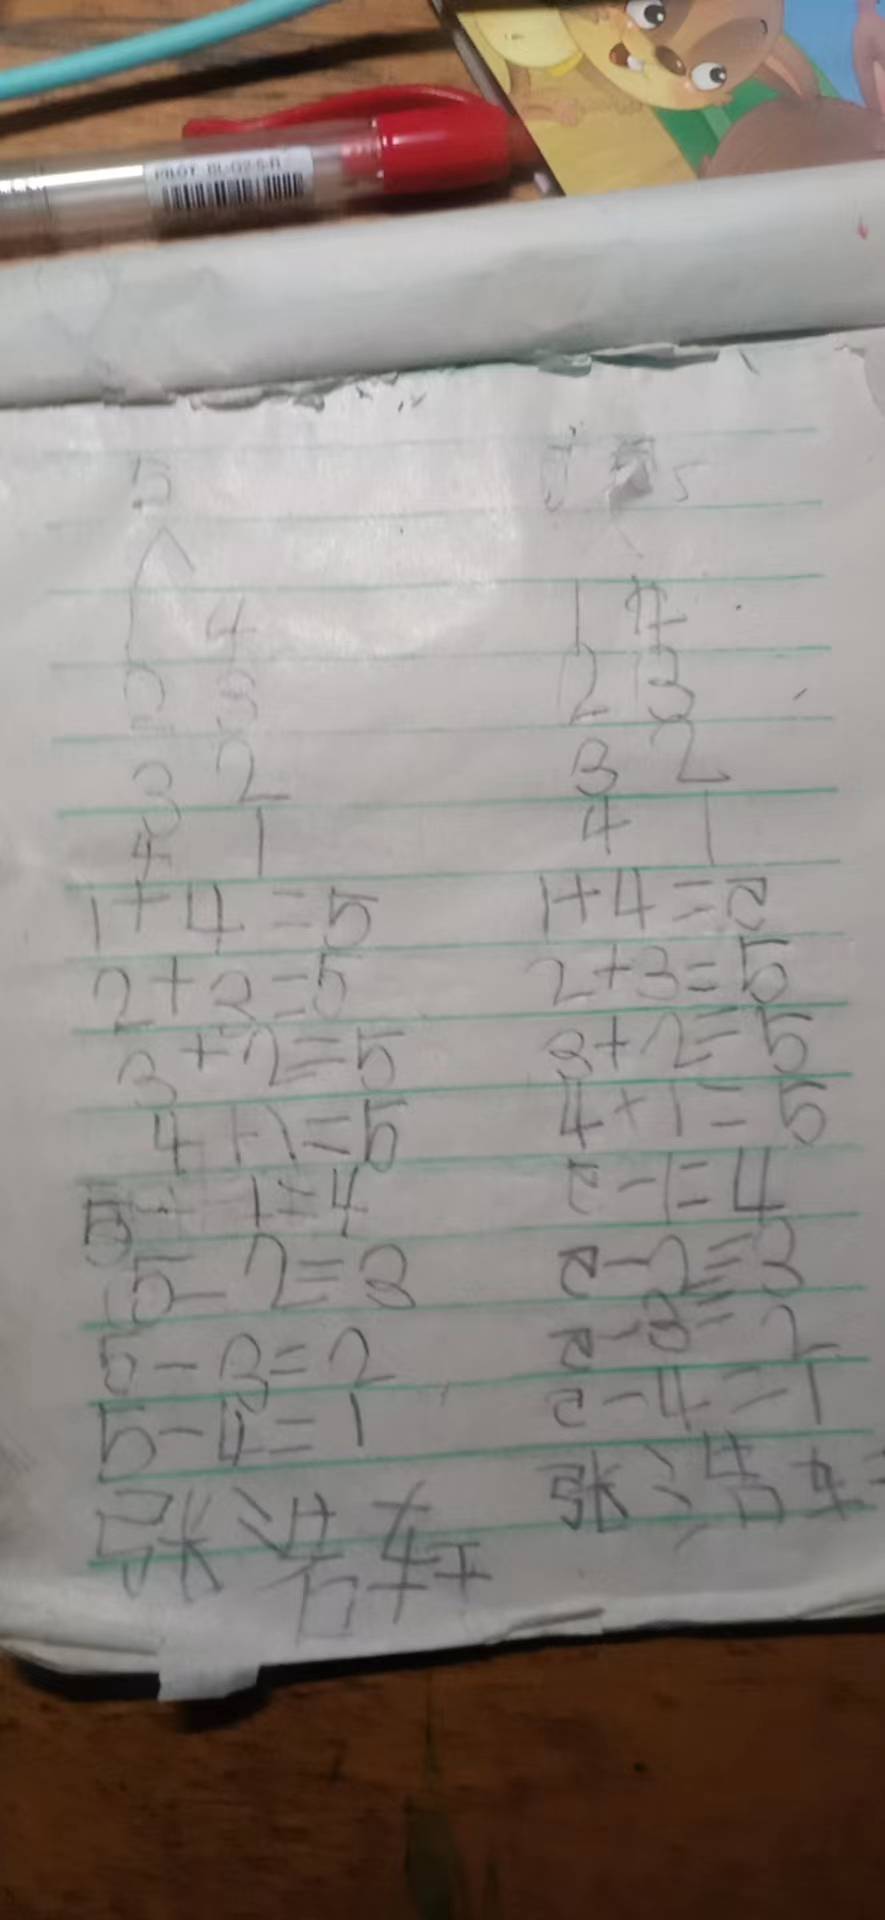 PILOT BL-G2-5-R
5 5
1 4 1 4
2 3 2 3
3 2 3 2
4 1 4 1
1+4=5 1+4=5
2+3=5 2+3=5
3+2=5 3+2=5
4+1=5 4+1=5
5-1=4 5-1=4
5-2=3 5-2=3
5-3=2 5-3=2
5-4=1 5-4=1
张 张